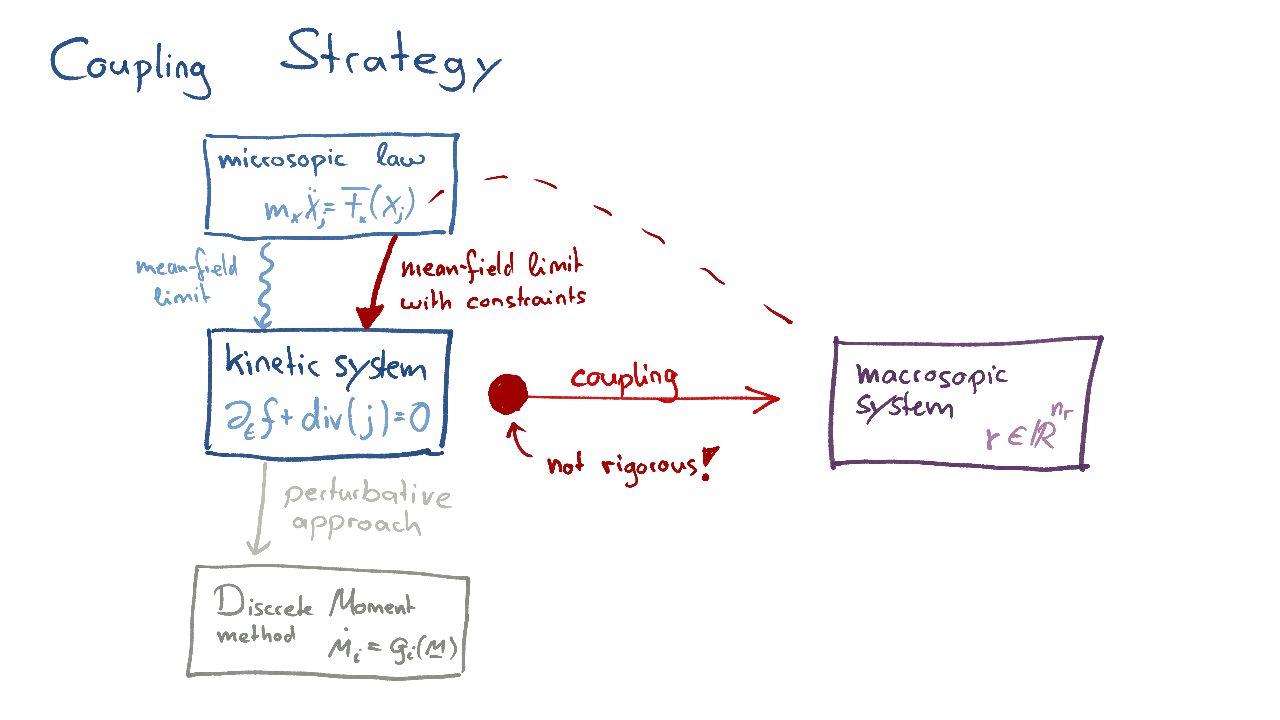 Coupling Strategy
microsopic law
mₓẍⱼ = Fₓ(xⱼ)
mean-field
limit
mean-field limit
with constraints
kinetic system
∂ₜf + div(j) = 0
coupling
not rigorous!
macrosopic
system
r ∈ ℝ^{n_r}
perturbative
approach
Discrete Moment
method
Ṁᵢ = gᵢ(M̲)